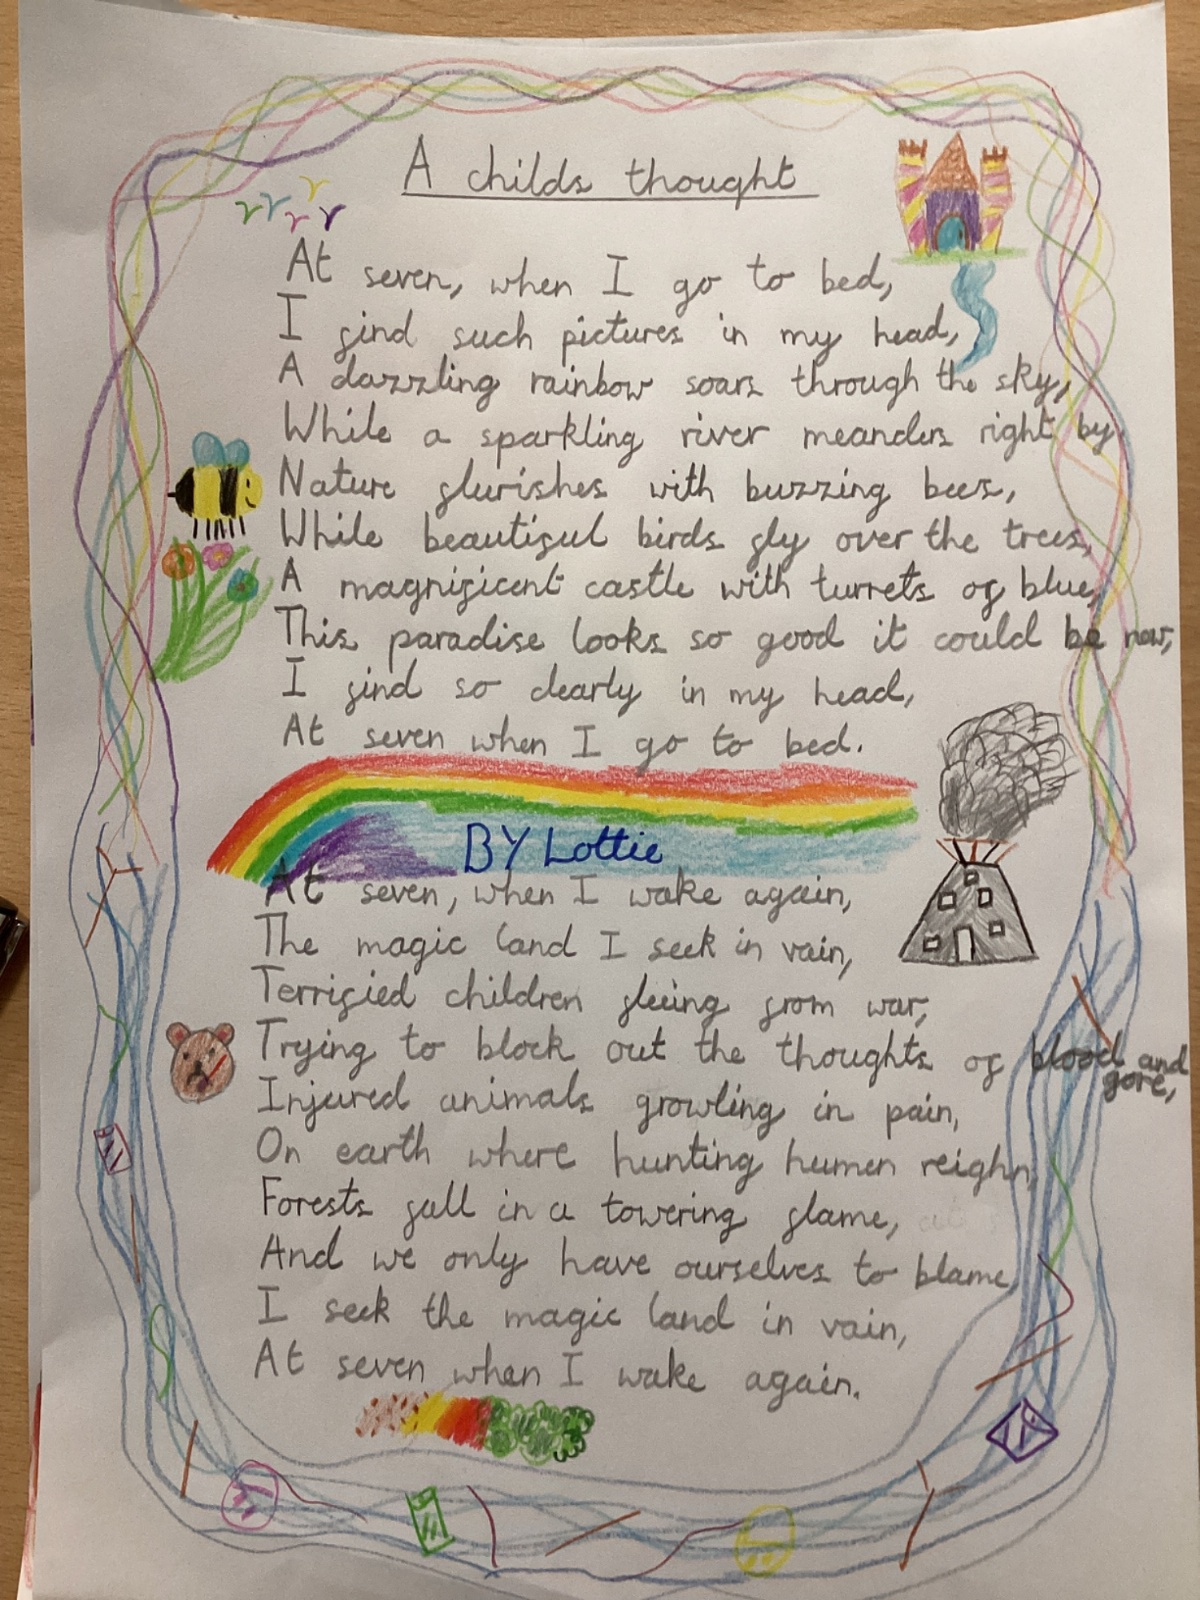 A childs thought
At seven, when I go to bed,
I find such pictures in my head,
A dazzling rainbow soars through the sky,
While a sparkling river meanders right by,
Nature flurishes with buzzing bees,
While beautiful birds fly over the trees,
A magnificent castle with turrets of blue,
This paradise looks so good it could be new,
I find so clearly in my head,
At seven when I go to bed.
BY Lottie
At seven, when I wake again,
The magic land I seek in vain,
Terrified children fleeing from war,
Trying to block out the thoughts of blood and
gore,
Injured animals growling in pain,
On earth where hunting humen reighn,
Forests fall in a towering flame,
And we only have ourselves to blame,
I seek the magic land in vain,
At seven when I wake again.